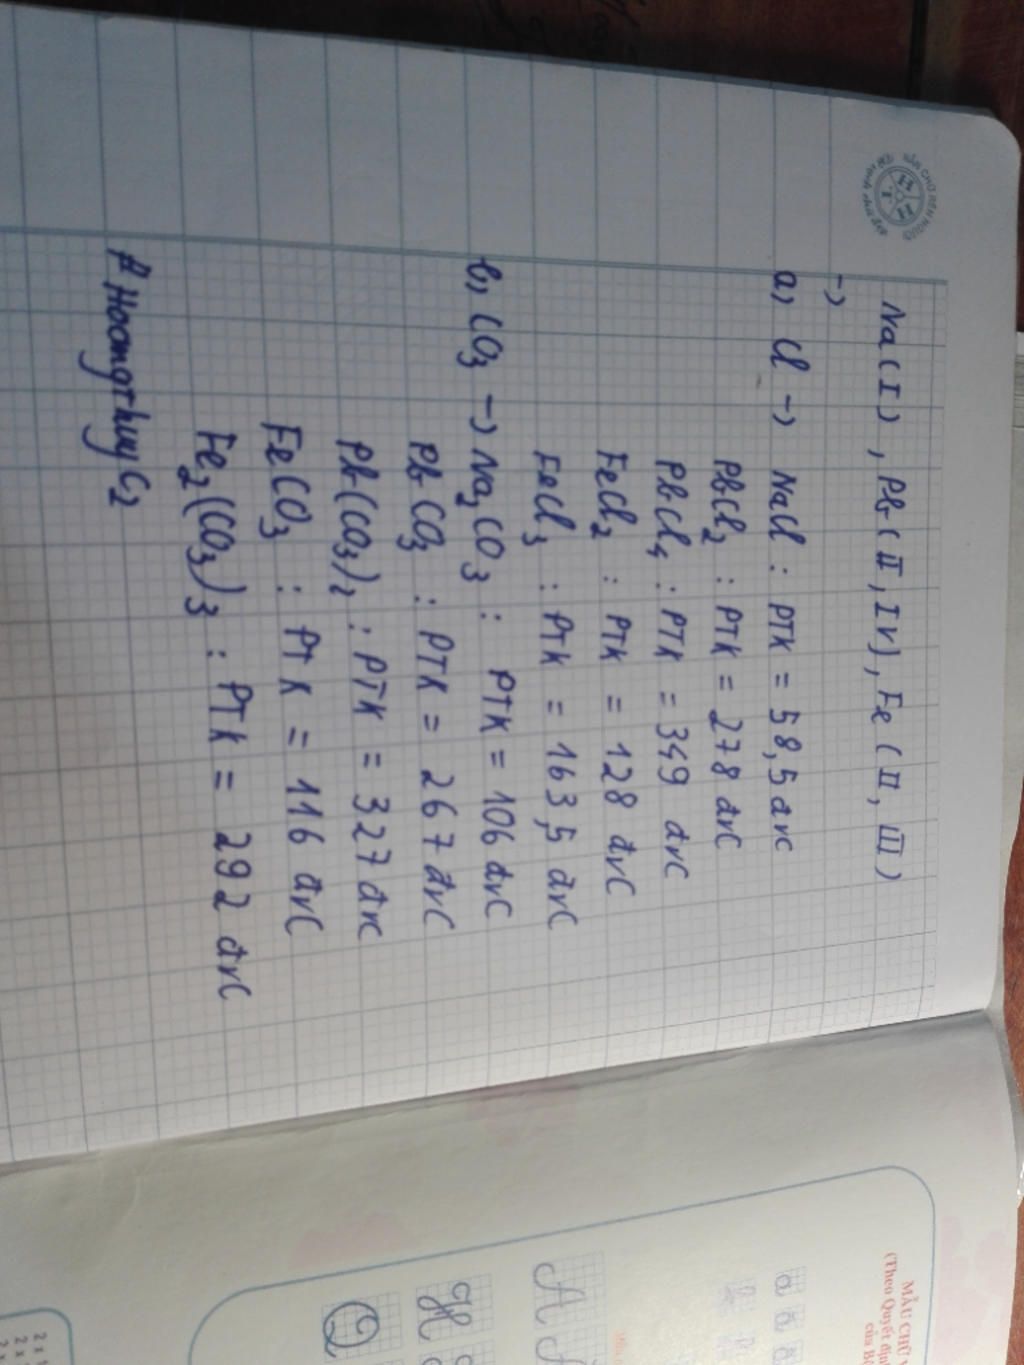 Na(I), Pb(II, IV), Fe(II, III)
->
a, Cl -> NaCl : PTK = 58,5 đvC
PbCl2 : PTK = 278 đvC
PbCl4 : PTK = 349 đvC
FeCl2 : PTK = 128 đvC
FeCl3 : PTK = 163,5 đvC
b, CO3 -> Na2CO3 : PTK = 106 đvC
PbCO3 : PTK = 267 đvC
Pb(CO3)2 : PTK = 327 đvC
FeCO3 : PTK = 116 đvC
Fe2(CO3)3 : PTK = 292 đvC
# HoongthuyC2
MẪU CHỮ
(Theo Quyết định
của Bộ
A
H
Q